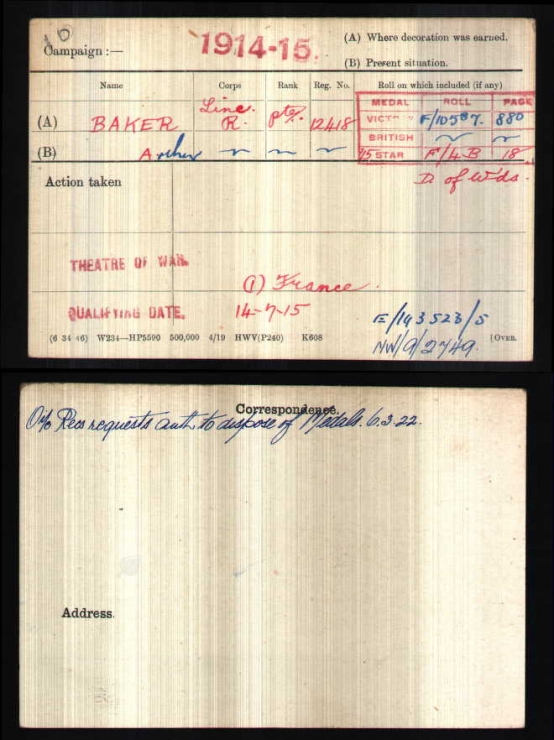 10
Campaign :— 1914-15. (A) Where decoration was earned.
(B) Present situation.
Name Corps Rank Reg. No. Roll on which included (if any)
MEDAL ROLL PAGE
(A) BAKER Linc. R. Pte. 12418 VICTY F/105B7. 880
BRITISH ~ ~
(B) Archer ~ ~ ~ 15 STAR F/4B 18
Action taken D of Wds.
THEATRE OF WAR. (1) France
QUALIFYING DATE. 14-7-15
E/143523/5
(6 34 46) W234—HP5590 500,000 4/19 HWV(P240) K608 NW/9/2749. [OVER.
Correspondence.
O i/c Recs requests auth to dispose of Medals. 6.3.22.
Address.